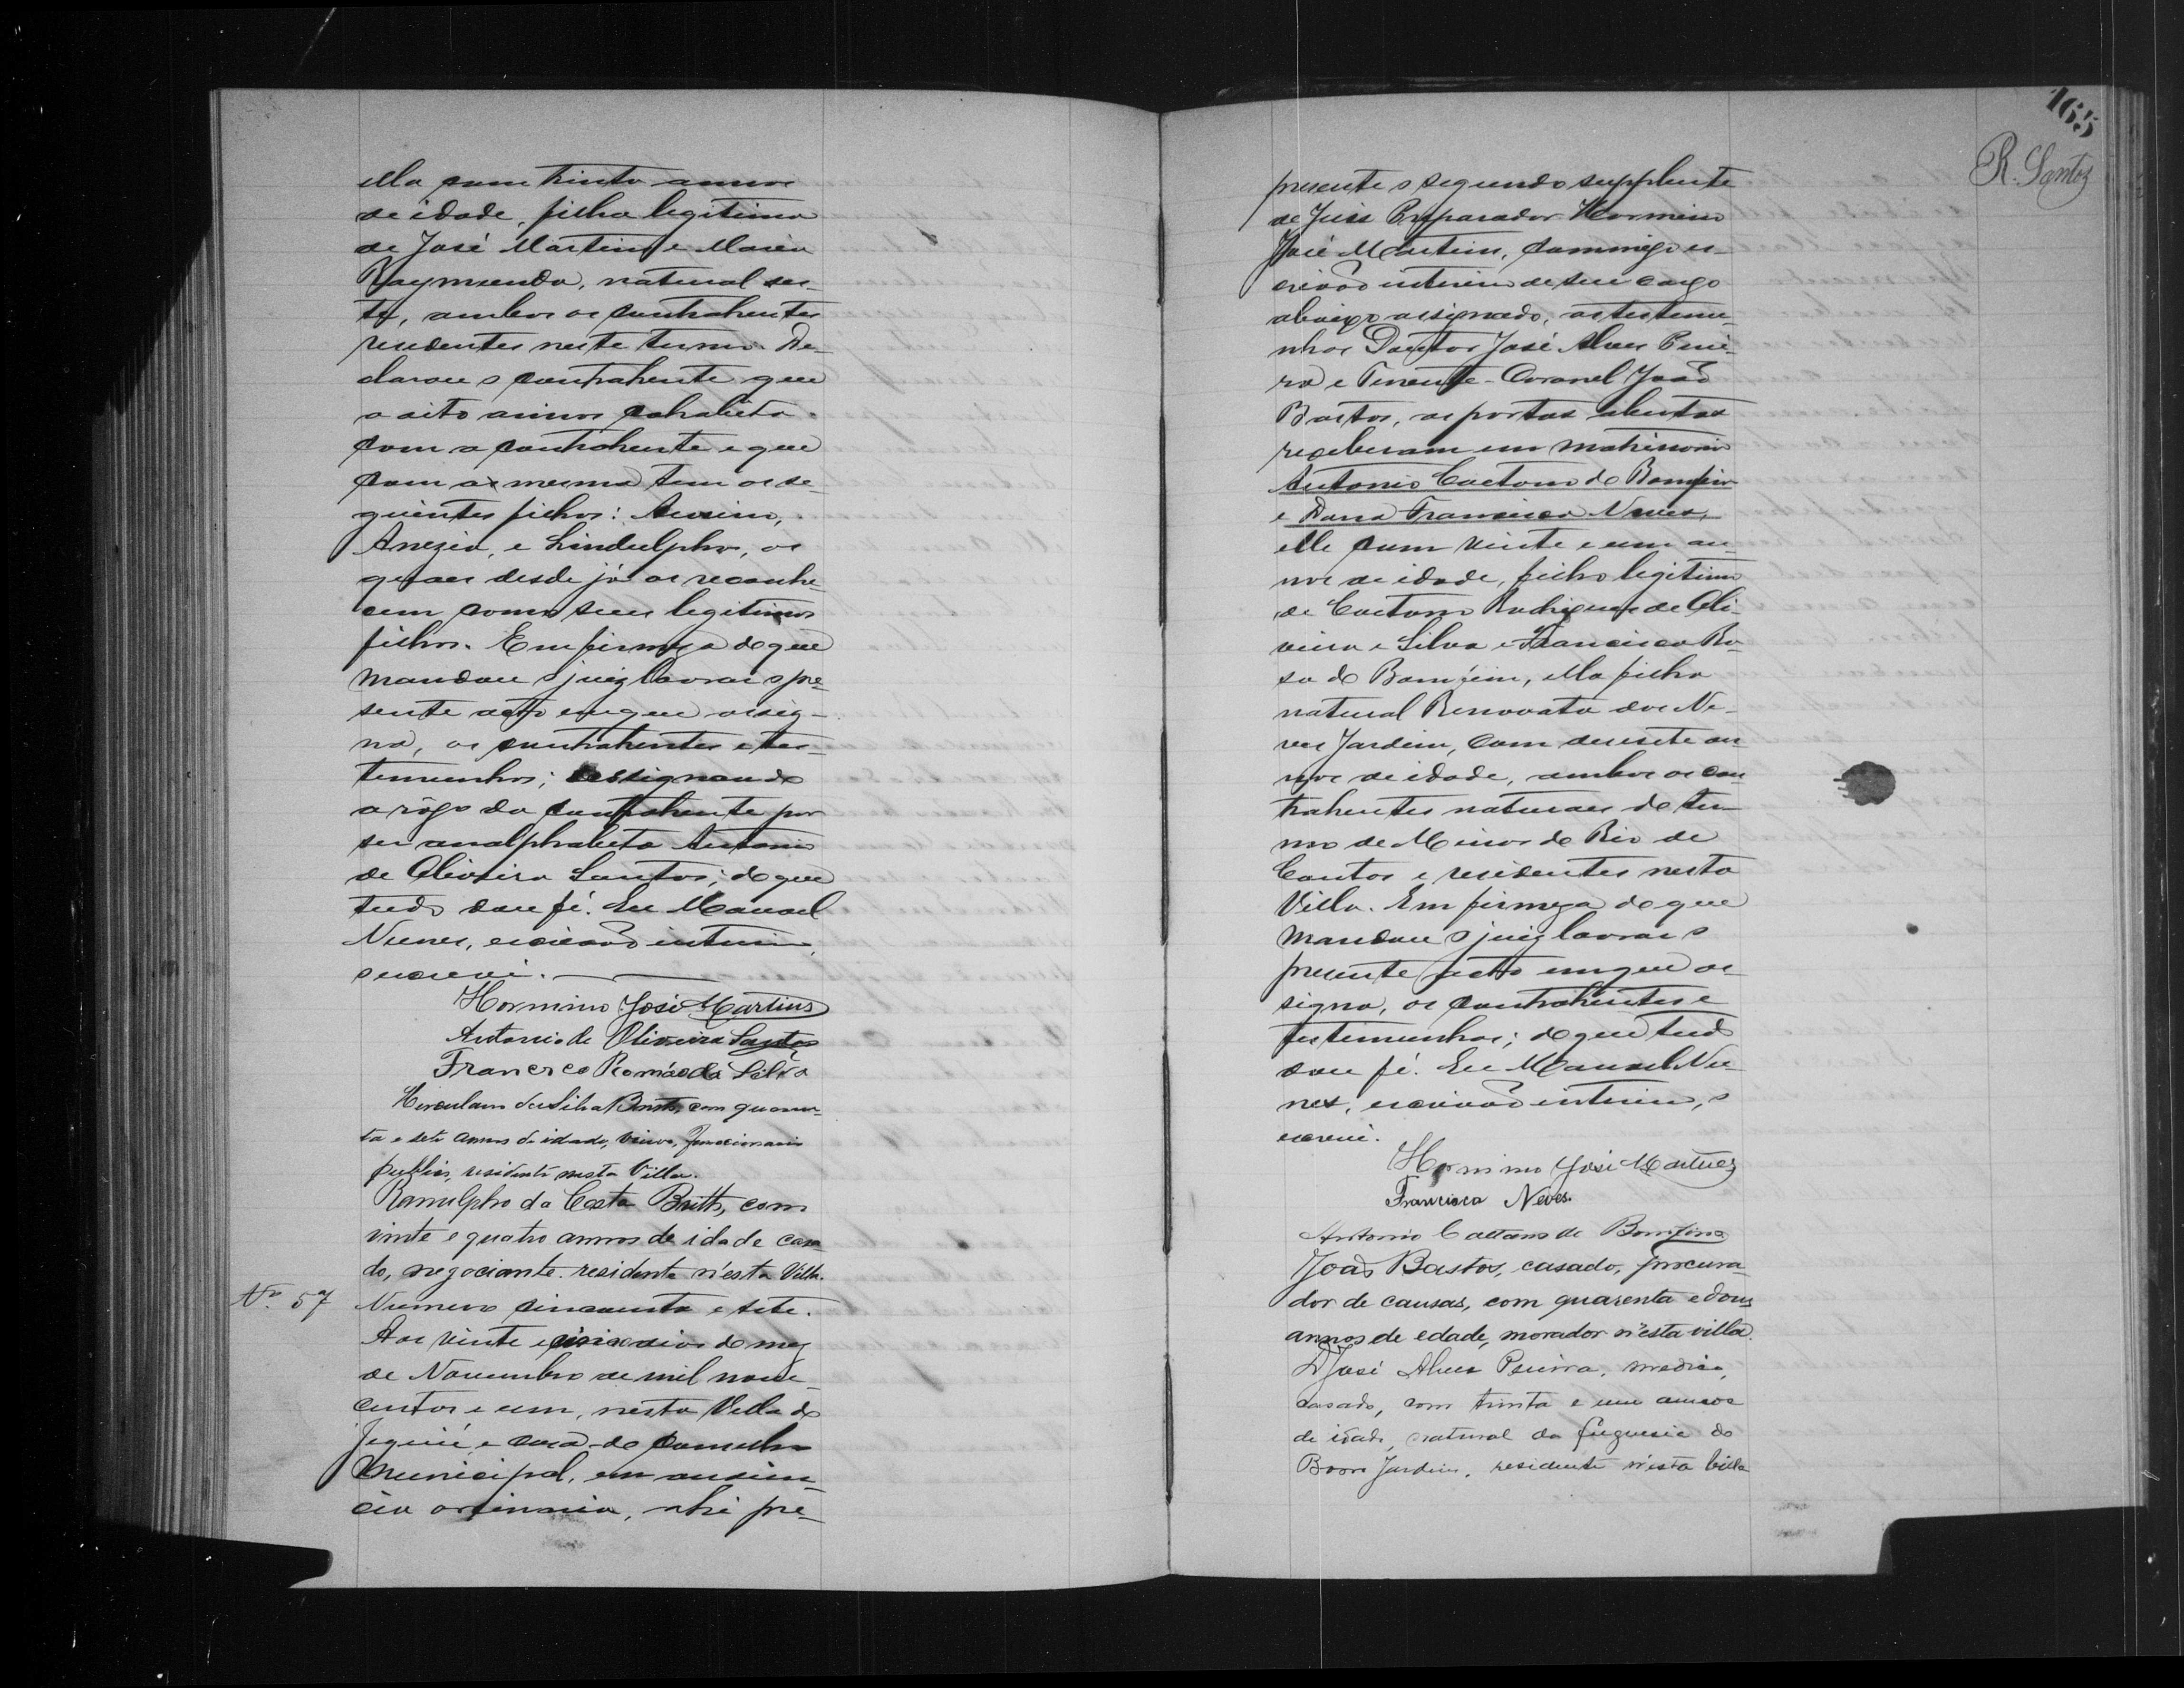 ella com trinta annos
de idade, filha legitima
de José Martins e Maria
Raymunda, natural des-
te, ambos os contrahentes
residentes neste termo. De-
clarou o contrahente que
a oito annos cohabita
com a contrahente e que
com a mesma tem os se-
guintes filhos:
Anezia, e Lindulpho, os
quaes desde já os reconhe-
cem como seus legitimos
filhos. Em firmeza do que
mandou o juiz lavrar o pre-
sente acto em que assig-
na, os contrahentes e tes-
temunhas; assignando
a rôgo da contrahente por
ser analphabeta Antonio
de Oliveira Santos; do que
tudo dou fé. Eu Manoel
Nunes, escrivão interino,
o escrevi.
Hormino José Martins
Antonio de Oliveira Santos
Francisco Romão da Silva
Herculano da Silva Britto, com quaren-
ta e sete annos de idade, viuvo, funccionario
publico, residente nesta Villa.
Ramulpho da Costa Britto, com
vinte e quatro annos de idade casa-
do, negociante. residente n'esta Villa.
Nº 57
Numero cincoenta e sete.
Aos vinte e cinco dias do mez
de Novembro de mil nove-
centos e um, nesta Villa de
Jequié e casa do Conselho
Municipal, em audien-
cia ordinaria, ahi pre-
165
R. Santos
presente o segundo supplente
de Juiz Preparador Hormino
José Martins, commigo es-
crivão interino de seu cargo
abaixo assignado, as testemu-
nhas Doutor José Alves Perei-
ra e Tenente-Coronel João
Bastos, as portas abertas
receberam em matrimonio
Antonio Caetano do Bomfim
e Dona Francisca Neves,
elle com vinte e um an-
nos de idade, filho legitimo
de Caetano Rodrigues de Oli-
veira e Silva e Francisca Ro-
sa do Bomfim, ella filha
natural Renovata das Ne-
ves Jardim, com desesete an-
nos de idade, ambos os con-
trahentes naturaes do ter-
mo de Minas do Rio de
Contas e residentes nesta
Villa. Em firmeza do que
mandou o juiz lavrar o
presente acto em que as-
signa, os contrahentes e
testemunhas; do que tudo
dou fé. Eu Manoel Nu-
nes, escrivão interino, o
escrevi.
Hormino José Martins
Francisca Neves.
Antonio Caetano do Bomfim
João Bastos, casado, procura-
dor de causas, com quarenta e dous
annos de edade, morador n'esta villa.
Dr José Alves Pereira, medico,
casado, com trinta e um annos
de idade, natural da freguesia do
Bom Jardim, residente n'esta Villa